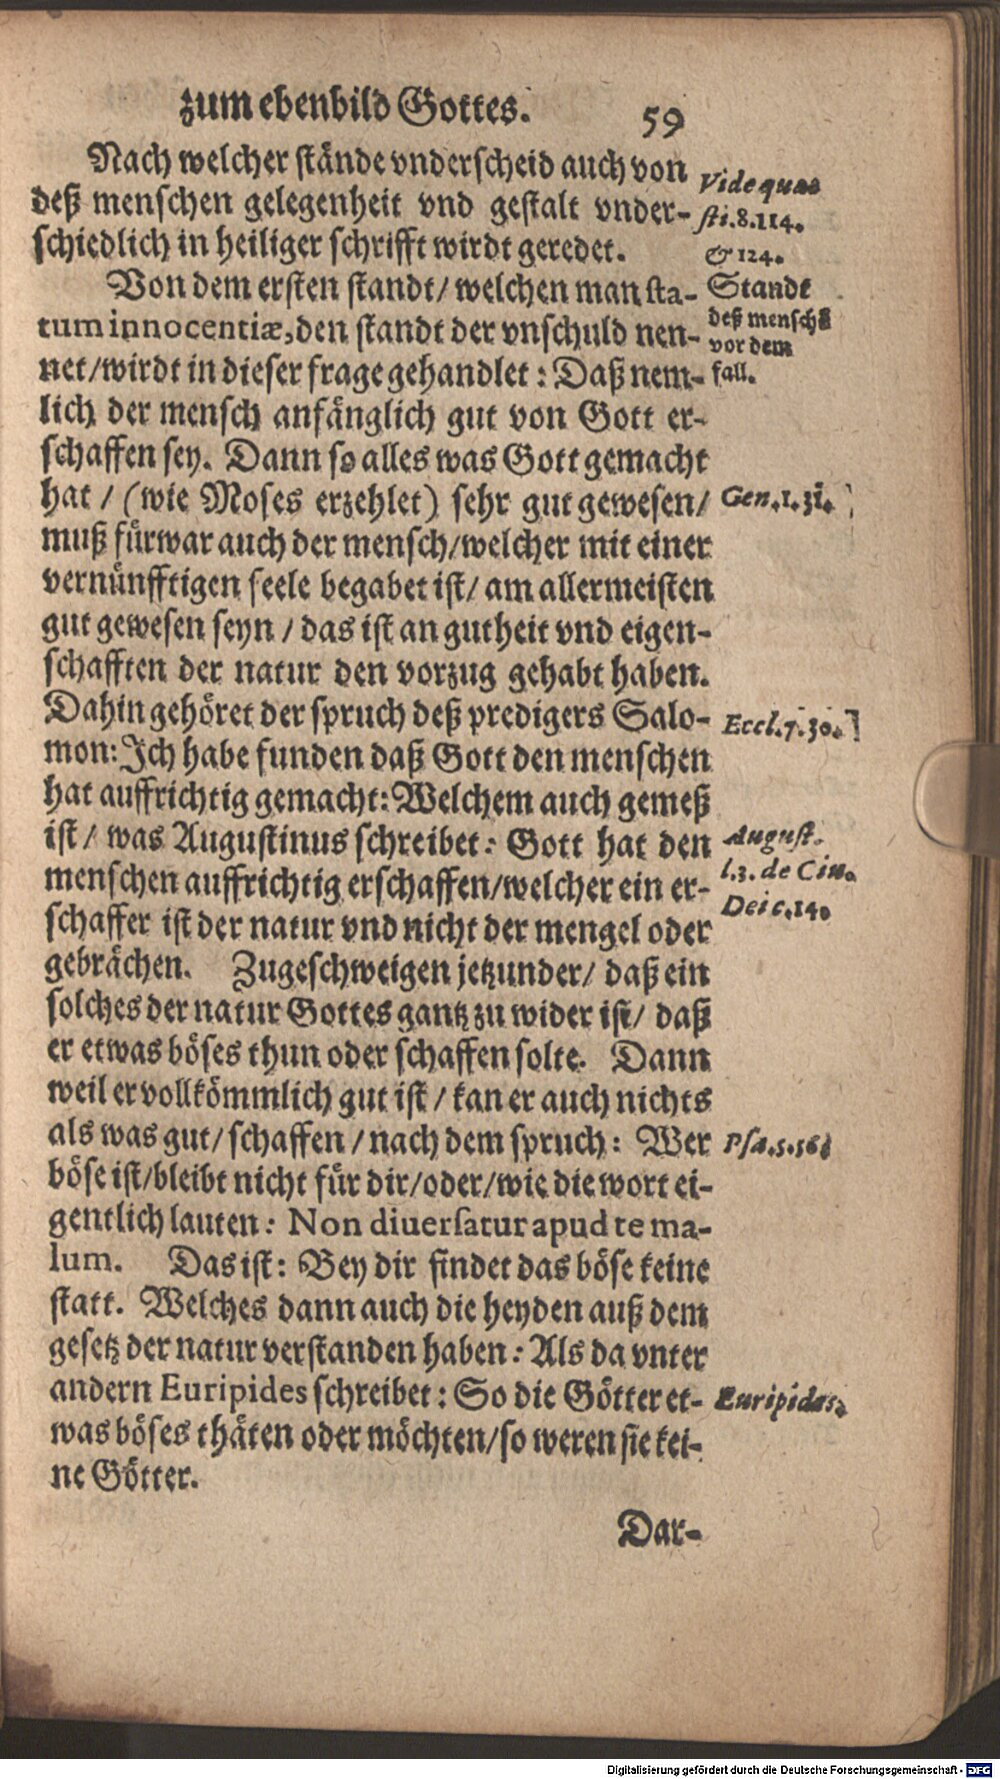 zum ebenbild Gottes. 59
Nach welcher stände vnderscheid auch von
deß menschen gelegenheit vnd gestalt vnder-
schiedlich in heiliger schrifft wirdt geredet.
Vide quae
sti. 8. 114.
& 124.
Von dem ersten standt/ welchen man sta-
tum innocentiæ, den standt der vnschuld nen-
net/ wirdt in dieser frage gehandlet: Daß nem-
lich der mensch anfänglich gut von Gott er-
schaffen sey. Dann so alles was Gott gemacht
hat / (wie Moses erzehlet) sehr gut gewesen/
muß fürwar auch der mensch/ welcher mit einer
vernünfftigen seele begabet ist/ am allermeisten
gut gewesen seyn / das ist an gutheit vnd eigen-
schafften der natur den vorzug gehabt haben.
Dahin gehöret der spruch deß predigers Salo-
mon: Ich habe funden daß Gott den menschen
hat auffrichtig gemacht: Welchem auch gemeß
ist/ was Augustinus schreibet: Gott hat den
menschen auffrichtig erschaffen/ welcher ein er-
schaffer ist der natur vnd nicht der mengel oder
gebrächen. Zugeschweigen jetzunder/ daß ein
solches der natur Gottes gantz zu wider ist/ daß
er etwas böses thun oder schaffen solte. Dann
weil er vollkömmlich gut ist / kan er auch nichts
als was gut/ schaffen / nach dem spruch: Wer
böse ist/ bleibt nicht für dir/ oder/ wie die wort ei-
gentlich lauten: Non diuersatur apud te ma-
lum. Das ist: Bey dir findet das böse keine
statt. Welches dann auch die heyden auß dem
gesetz der natur verstanden haben: Als da vnter
andern Euripides schreibet: So die Götter et-
was böses thäten oder möchten/ so weren sie kei-
ne Götter.
Standt
deß mensch̃e
vor dem
fall.
Gen. 1. 31.
Eccl. 7. 30.
August.
l. 3. de Ciu.
Dei c. 14.
Psa. 5.
Euripides.
Dar-
Digitalisierung gefördert durch die Deutsche Forschungsgemeinschaft - DFG